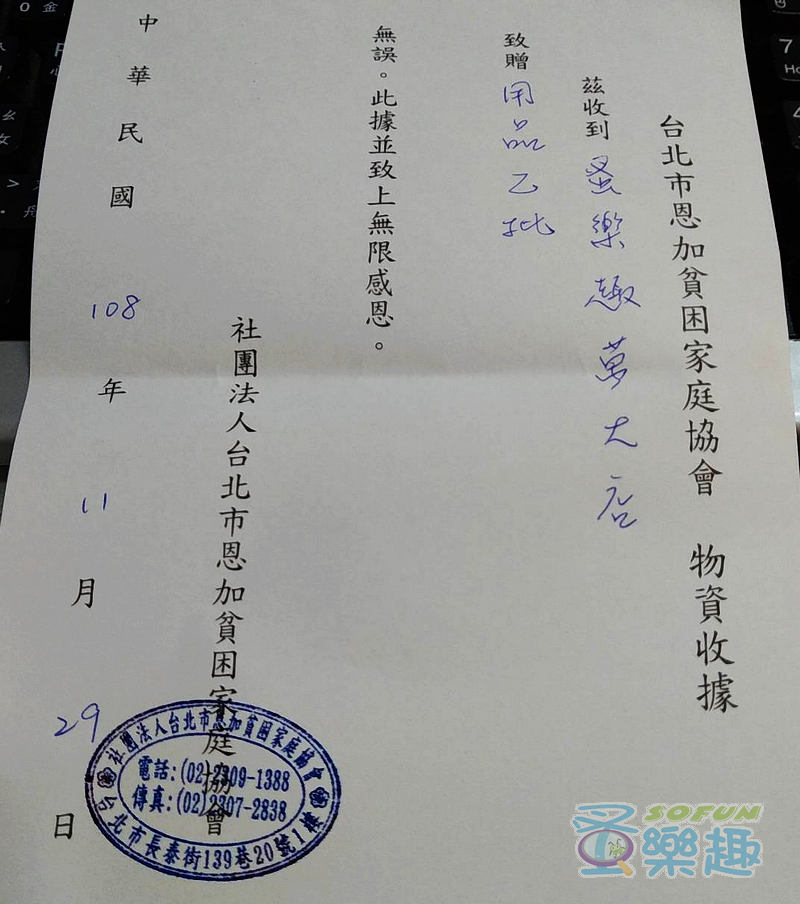 台北市恩加貧困家庭協會 物資收據
茲收到 蚤樂趣萬大店
致贈 用品乙批
無誤。此據並致上無限感恩。
社團法人台北市恩加貧困家庭協會
中華民國 108 年 11 月 29 日
社團法人台北市恩加貧困家庭協會
電話:(02)2309-1388
傳真:(02)2307-2838
台北市長泰街139巷20號1樓
SOFUN
蚤樂趣